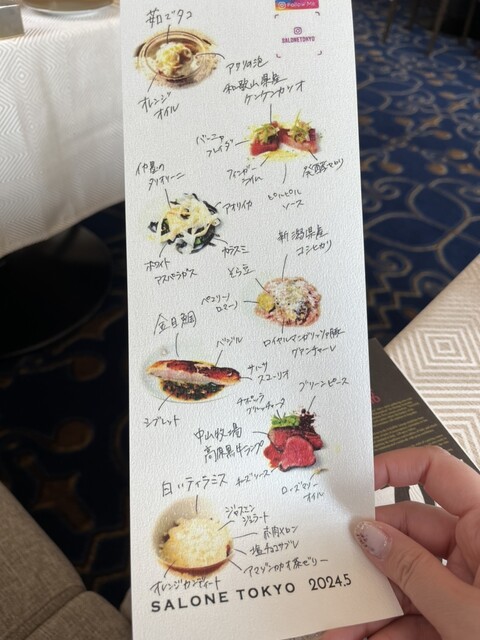 Follow Me
SALONETOKYO
茹でダコ
アサリの泡
オレンジ
オイル
和歌山県産
ケンケンカツオ
バーニャ
フレイダ
フィンガー
ライム
ピルピル
ソース
発酵セロリ
イカ墨の
タリオリーニ
アオリイカ
カラスミ
ホワイト
アスパラガス
新潟県産
コシヒカリ
そら豆
ペコリーノ
ロマーノ
ロイヤルマンガリッツァ豚
グアンチャーレ
金目鯛
バジル
シブレット
グリーンピース
中山牧場
高原黒牛ランプ
チーズソース
ローズマリー
オイル
白いティラミス
ジャスミン
ジェラート
赤肉メロン
塩チョコサブレ
アマゾンカカオ茶ゼリー
オレンジカンディート
SALONE TOKYO 2024.5